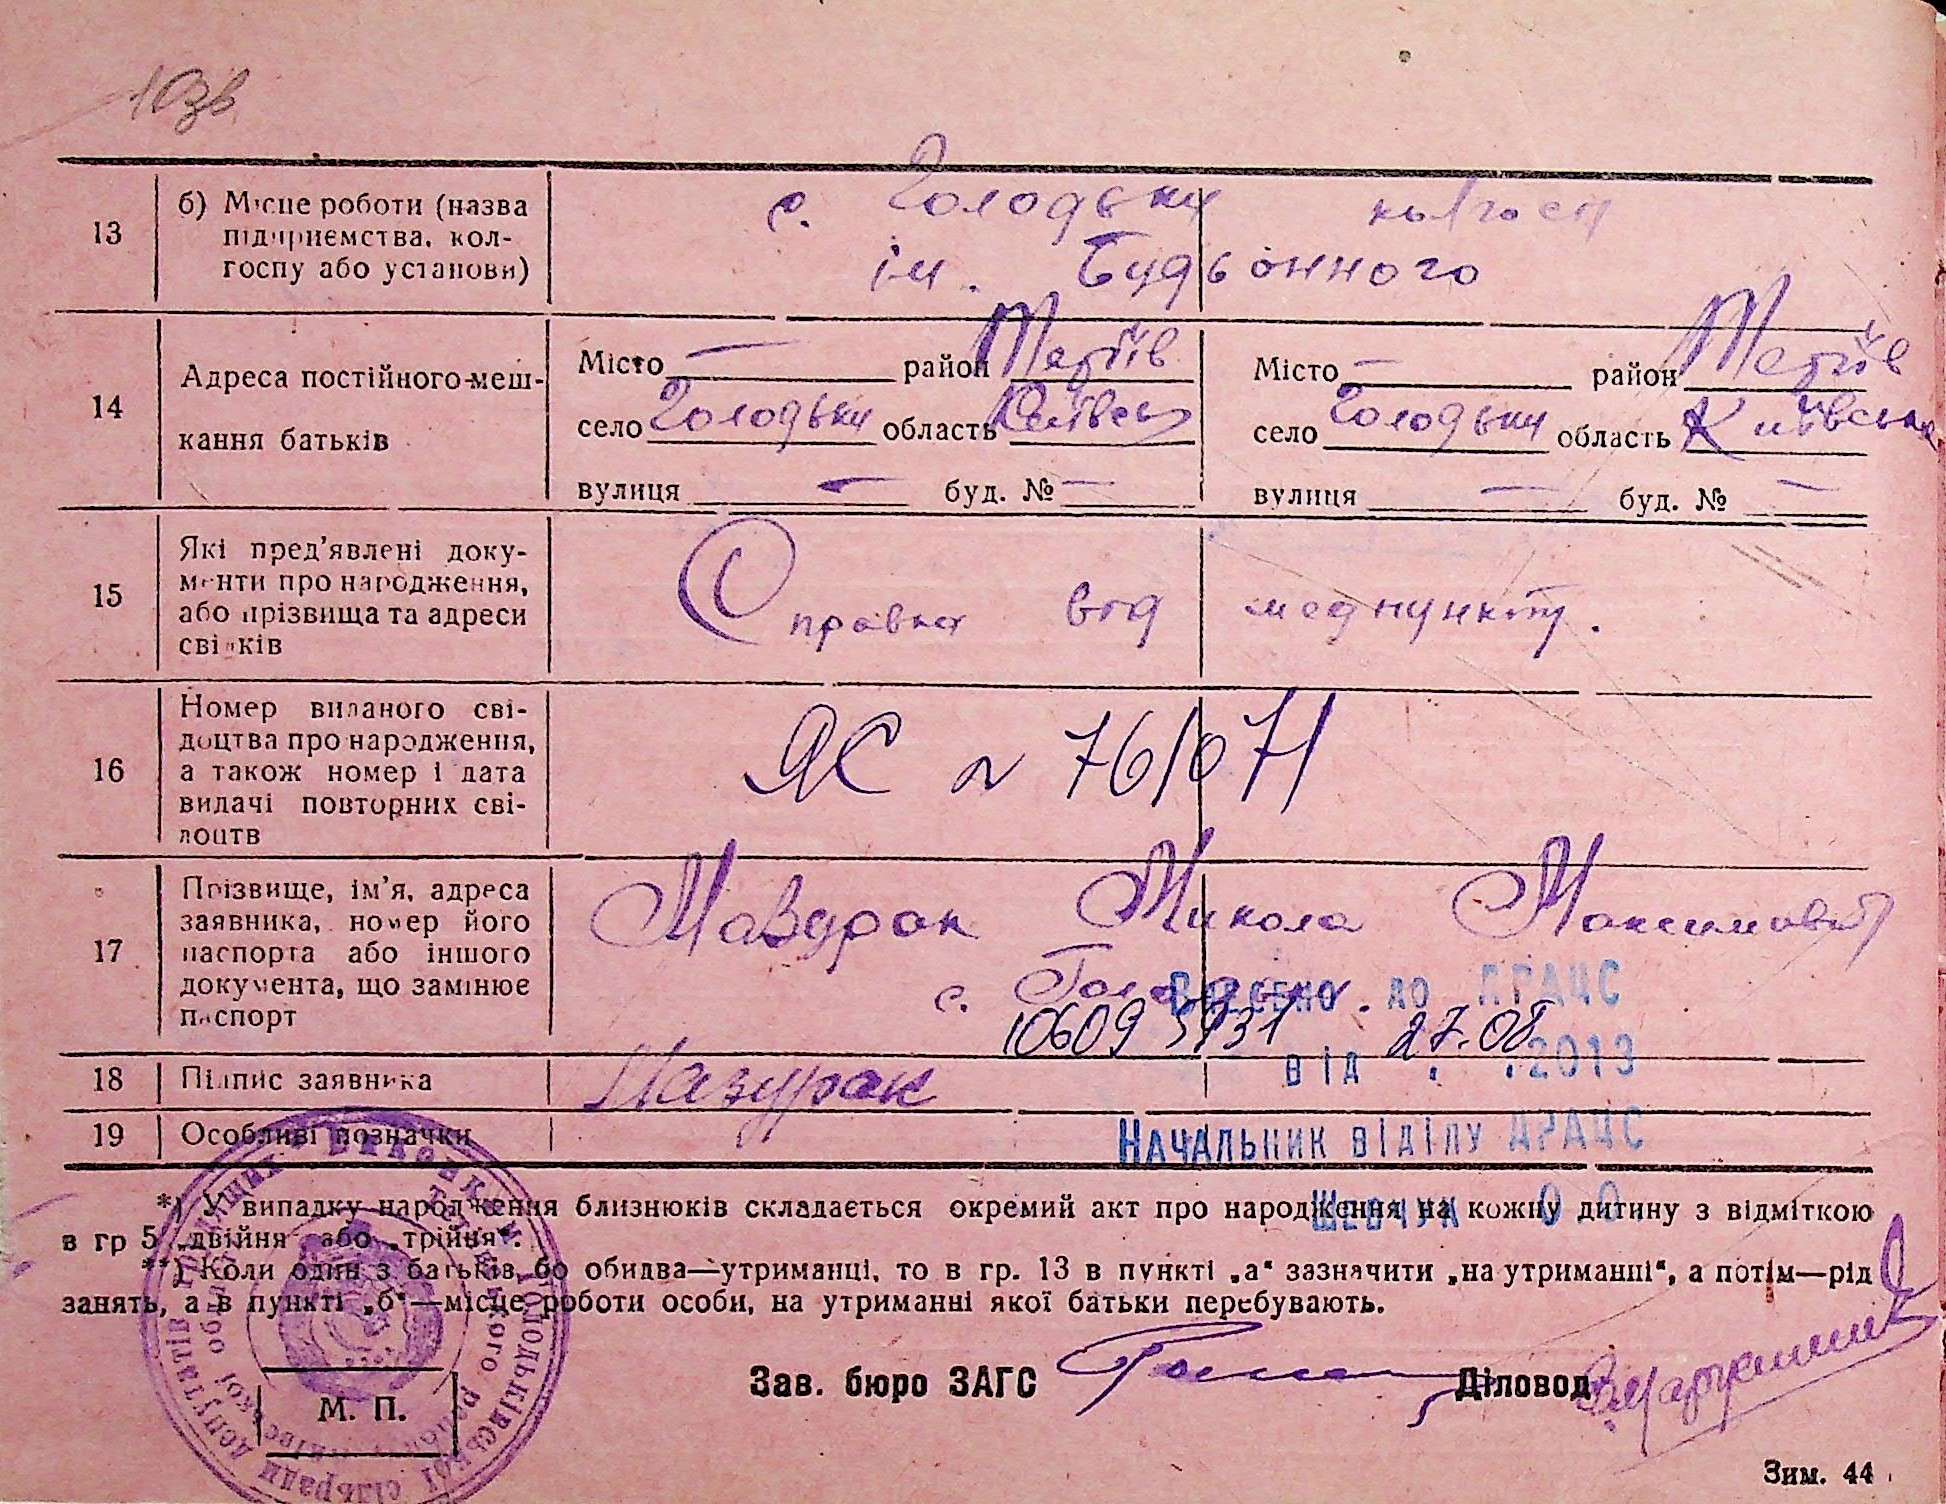 10зв
13
б) Місце роботи (назва
підприємства, кол-
госпу або установи)
с. Голодьки колгосп
ім. Будьонного
14
Адреса постійного меш-
кання батьків
Місто — район Тетіїв
село Голодьки область Київськ
вулиця — буд. № —
Місто — район Тетіїв
село Голодьки область Київська
вулиця — буд. № —
15
Які пред'явлені доку-
менти про народження,
або прізвища та адреси
свідків
Справка від медпункту.
16
Номер виданого сві-
доцтва про народження,
а також номер і дата
видачі повторних сві-
доцтв
ЯС № 761071
17
Прізвище, ім'я, адреса
заявника, номер його
паспорта або іншого
документа, що замінює
паспорт
Мазурок Микола Максимович
с. Голодьки.
Внесено до ДРАЦС
10609 27.08.
від . .2013
18
Підпис заявника
Мазурак
19
Особливі позначки
Начальник відділу ДРАЦС
Шевчук О О
*) У випадку народження близнюків складається окремий акт про народження на кожну дитину з відміткою
в гр 5 „двійня" або „трійня".
**) Коли один з батьків бо обидва—утриманці, то в гр. 13 в пункті „а" зазначити „на утриманні", а потім—рід
занять, а в пункті „б"—місце роботи особи, на утриманні якої батьки перебувають.
М. П.
Зав. бюро ЗАГС
Діловод
Зим. 44